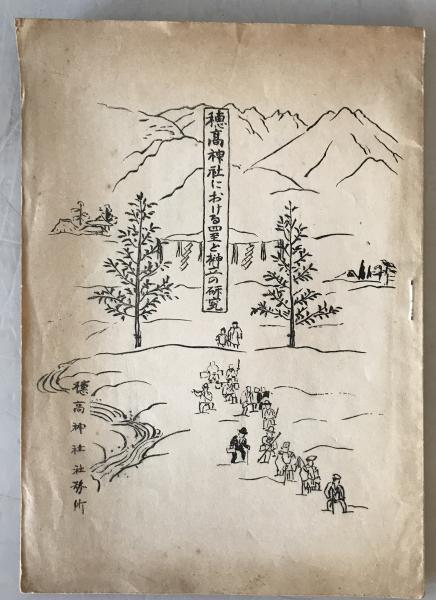 穂高神社における四至と榊立の研究
穂高神社社務所